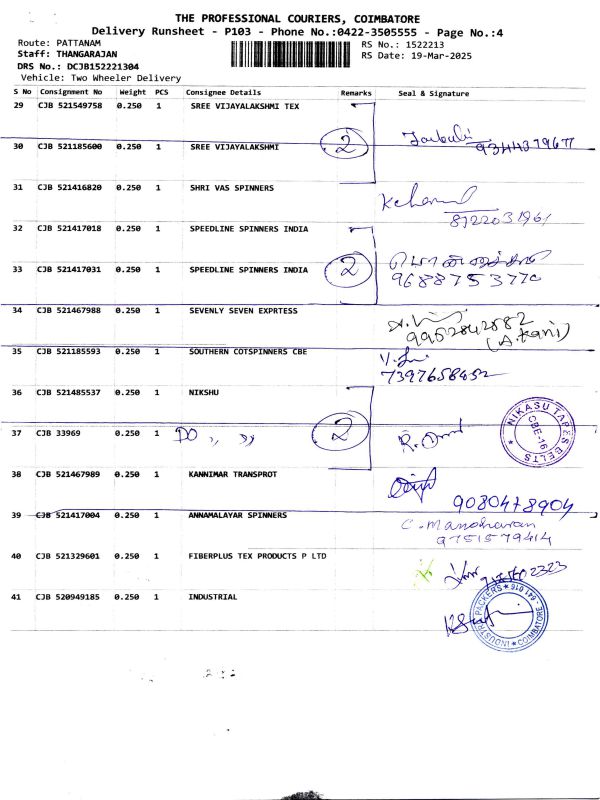 THE PROFESSIONAL COURIERS, COIMBATORE
Delivery Runsheet - P103 - Phone No.:0422-3505555 - Page No.:4
Route: PATTANAM
RS No.: 1522213
Staff: THANGARAJAN
RS Date: 19-Mar-2025
DRS No.: DCJB152221304
Vehicle: Two Wheeler Delivery
S No Consignment No Weight PCS Consignee Details Remarks Seal & Signature
29 CJB 521549758 0.250 1 SREE VIJAYALAKSHMI TEX
2
30 CJB 521185600 0.250 1 SREE VIJAYALAKSHMI 9344379677
31 CJB 521416820 0.250 1 SHRI VAS SPINNERS
8122031961
32 CJB 521417018 0.250 1 SPEEDLINE SPINNERS INDIA
33 CJB 521417031 0.250 1 SPEEDLINE SPINNERS INDIA 2 9688753770
34 CJB 521467988 0.250 1 SEVENLY SEVEN EXPRTESS
9952842882
(A.Kani)
35 CJB 521185593 0.250 1 SOUTHERN COTSPINNERS CBE
7397658452
36 CJB 521485537 0.250 1 NIKSHU
NIKASU TAPES BELTS
CBE-16
37 CJB 33969 0.250 1 DO ,, ,, 2
38 CJB 521467989 0.250 1 KANNIMAR TRANSPROT
9080478904
39 CJB 521417004 0.250 1 ANNAMALAYAR SPINNERS
C. Manoharan
9751579414
40 CJB 521329601 0.250 1 FIBERPLUS TEX PRODUCTS P LTD
41 CJB 520949185 0.250 1 INDUSTRIAL
INDUSTRIAL PACKERS * 641 016 * COIMBATORE